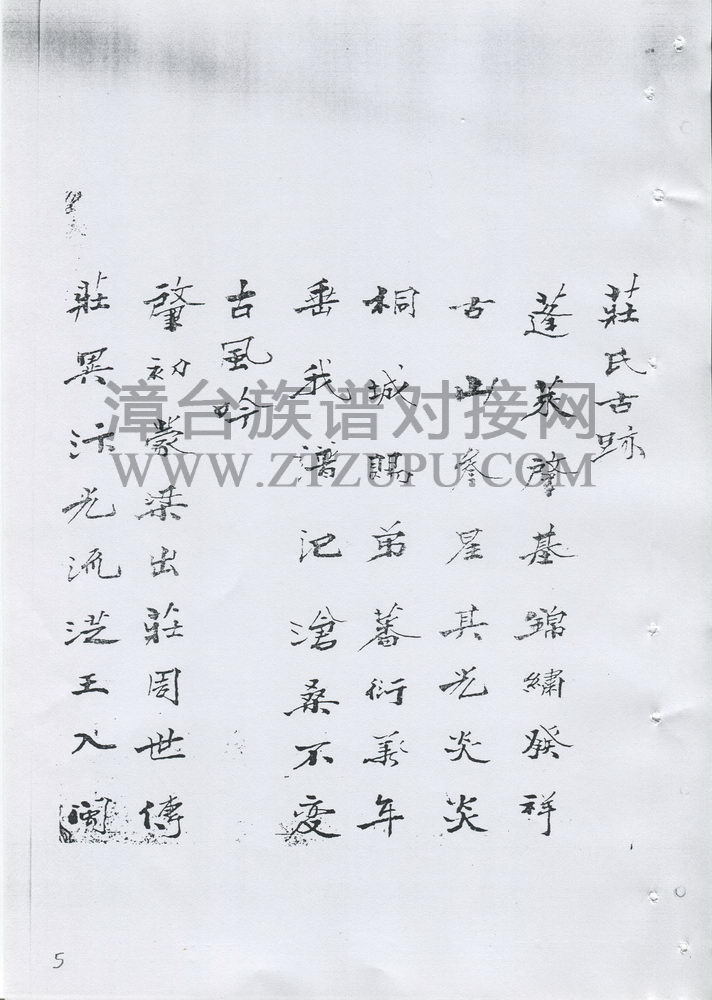 莊氏古跡
蓬萊肇基錦繡發祥
古山參星其光炎炎
桐城賜弟蕃衍萬年
垂我譜記滄桑不变
古風吟
肇初蒙梁出莊周世傳
莊異汴光流从王入閩
漳台族谱对接网
WWW.ZTZUPU.COM
5